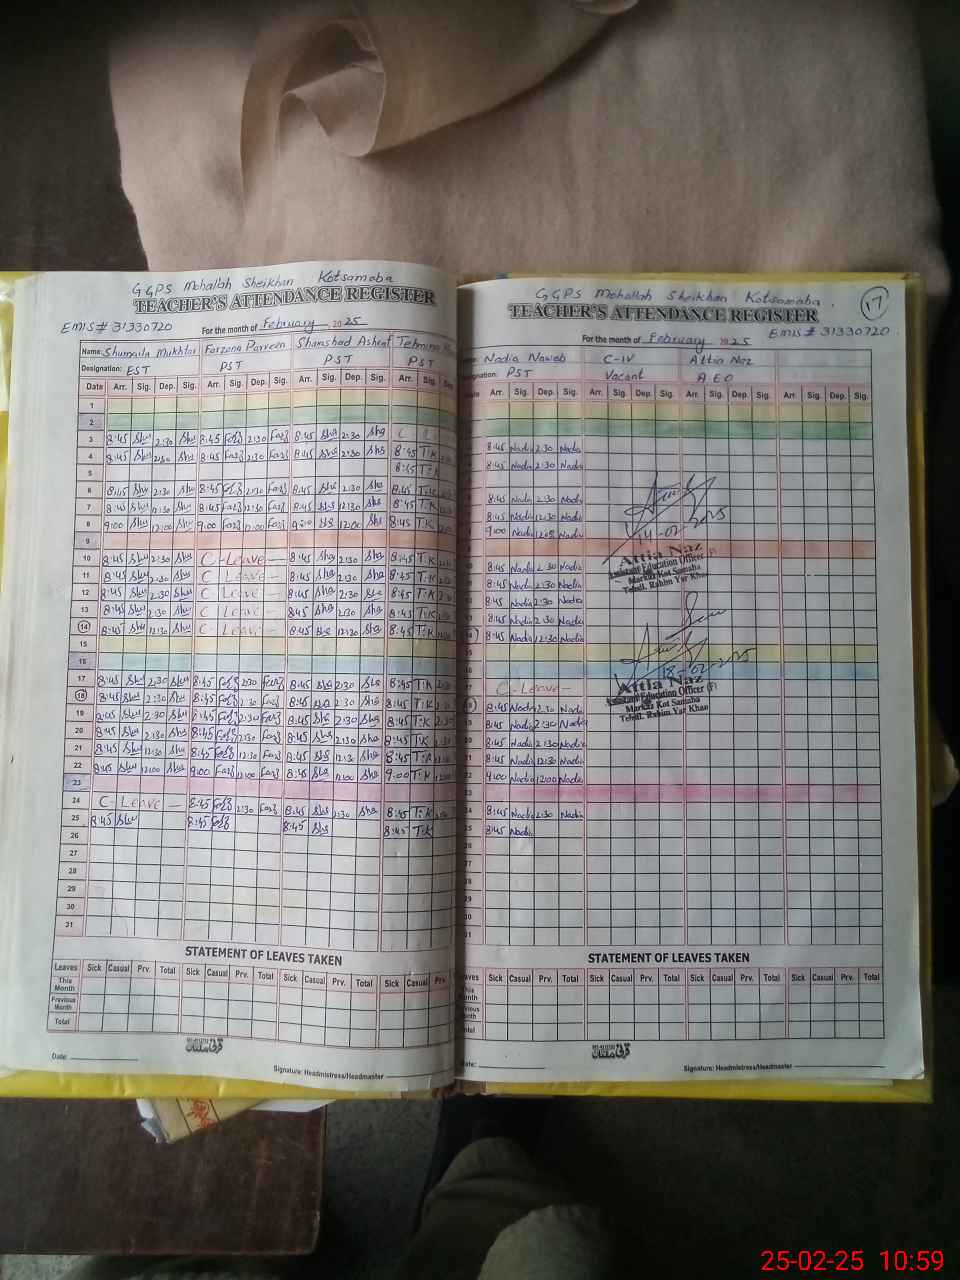 GGPS Mohallah Sheikhan Kotsamaba
TEACHER'S ATTENDANCE REGISTER
EMIS # 31330720
For the month of February 2025
Name: Shumaila Mukhtar Farzana Parveen Shamshad Ashraf Tehmina
Designation: EST PST PST PST
Date Arr. Sig. Dep. Sig. Arr. Sig. Dep. Sig. Arr. Sig. Dep. Sig. Arr. Sig.
1
2
3 8:45 Shu 2:30 Shu 8:45 Farz 2:30 Farz 8:45 Sha 2:30 Sha C
4 8:45 Shu 2:30 Shu 8:45 Farz 2:30 Farz 8:45 Sha 2:30 Sha 8:45 T.K
5 8:45 T.K
6 8:45 Shu 2:30 Shu 8:45 Farz 2:30 Farz 8:45 Sha 2:30 Sha 8:45 T.K
7 8:45 Shu 12:30 Shu 8:45 Farz 12:30 Farz 8:45 Sha 12:30 Sha 8:45 T.K
8 9:00 Shu 12:00 Shu 9:00 Farz 12:00 Farz 9:00 Sha 12:00 Sha 8:45 T.K
9
10 8:45 Shu 2:30 Shu C-Leave — 8:45 Sha 2:30 Sha 8:45 T.K
11 8:45 Shu 2:30 Shu C Leave — 8:45 Sha 2:30 Sha 8:45 T.K
12 8:45 Shu 2:30 Shu C Leave — 8:45 Sha 2:30 Sha 8:45 T.K
13 8:45 Shu 2:30 Shu C Leave — 8:45 Sha 2:30 Sha 8:45 T.K
14 8:45 Shu 12:30 Shu C-Leave — 8:45 Sha 12:30 Sha 8:45 T.K
15
16
17 8:45 Shu 2:30 Shu 8:45 Farz 2:30 Farz 8:45 Sha 2:30 Sha 8:45 T.K 2:30
18 8:45 Shu 2:30 Shu 8:45 Farz 2:30 Farz 8:45 Sha 2:30 Sha 8:45 T.K 2:30
19 8:45 Shu 2:30 Shu 8:45 Farz 2:30 Farz 8:45 Sha 2:30 Sha 8:45 T.K 2:30
20 8:45 Shu 2:30 Shu 8:45 Farz 2:30 Farz 8:45 Sha 2:30 Sha 8:45 T.K 2:30
21 8:45 Shu 12:30 Shu 8:45 Farz 12:30 Farz 8:45 Sha 12:30 Sha 8:45 T.K
22 8:45 Shu 12:00 Shu 9:00 Farz 12:00 Farz 8:45 Sha 12:00 Sha 9:00 T.K
23
24 C-Leave — 8:45 Farz 2:30 Farz 8:45 Sha 2:30 Sha 8:45 T.K
25 8:45 Shu 8:45 Farz 8:45 Sha 8:45 T.K
26
27
28
29
30
31
STATEMENT OF LEAVES TAKEN
Leaves Sick Casual Prv. Total Sick Casual Prv. Total Sick Casual Prv. Total Sick Casual Prv.
This Month
Previous Month
Total
Date:
Signature: Headmistress/Headmaster
GGPS Mohallah Sheikhan Kotsamaba
17
TEACHER'S ATTENDANCE REGISTER
EMIS # 31330720
For the month of February 2025
Nadia Nawab C-IV Attia Naz
PST Vacant A.E.O
Arr. Sig. Dep. Sig. Arr. Sig. Dep. Sig. Arr. Sig. Dep. Sig. Arr. Sig. Dep. Sig.
8:45 Nadia 2:30 Nadia
8:45 Nadia 2:30 Nadia
8:45 Nadia 2:30 Nadia
8:45 Nadia 12:30 Nadia
9:00 Nadia 12:05 Nadia
14-02-2025
Attia Naz
Assistant Education Officer (F)
Markaz Kot Samaba
Tehsil. Rahim Yar Khan
8:45 Nadia 2:30 Nadia
8:45 Nadia 2:30 Nadia
8:45 Nadia 2:30 Nadia
8:45 Nadia 2:30 Nadia
8:45 Nadia 12:30 Nadia
18-02-2025
Attia Naz
Assistant Education Officer (F)
Markaz Kot Samaba
Tehsil. Rahim Yar Khan
C Leave —
8:45 Nadia 2:30 Nadia
8:45 Nadia 2:30 Nadia
8:45 Nadia 2:30 Nadia
8:45 Nadia 12:30 Nadia
9:00 Nadia 12:00 Nadia
8:45 Nadia 2:30 Nadia
8:45 Nadia
STATEMENT OF LEAVES TAKEN
Sick Casual Prv. Total Sick Casual Prv. Total Sick Casual Prv. Total Sick Casual Prv. Total
Signature: Headmistress/Headmaster
25-02-25 10:59